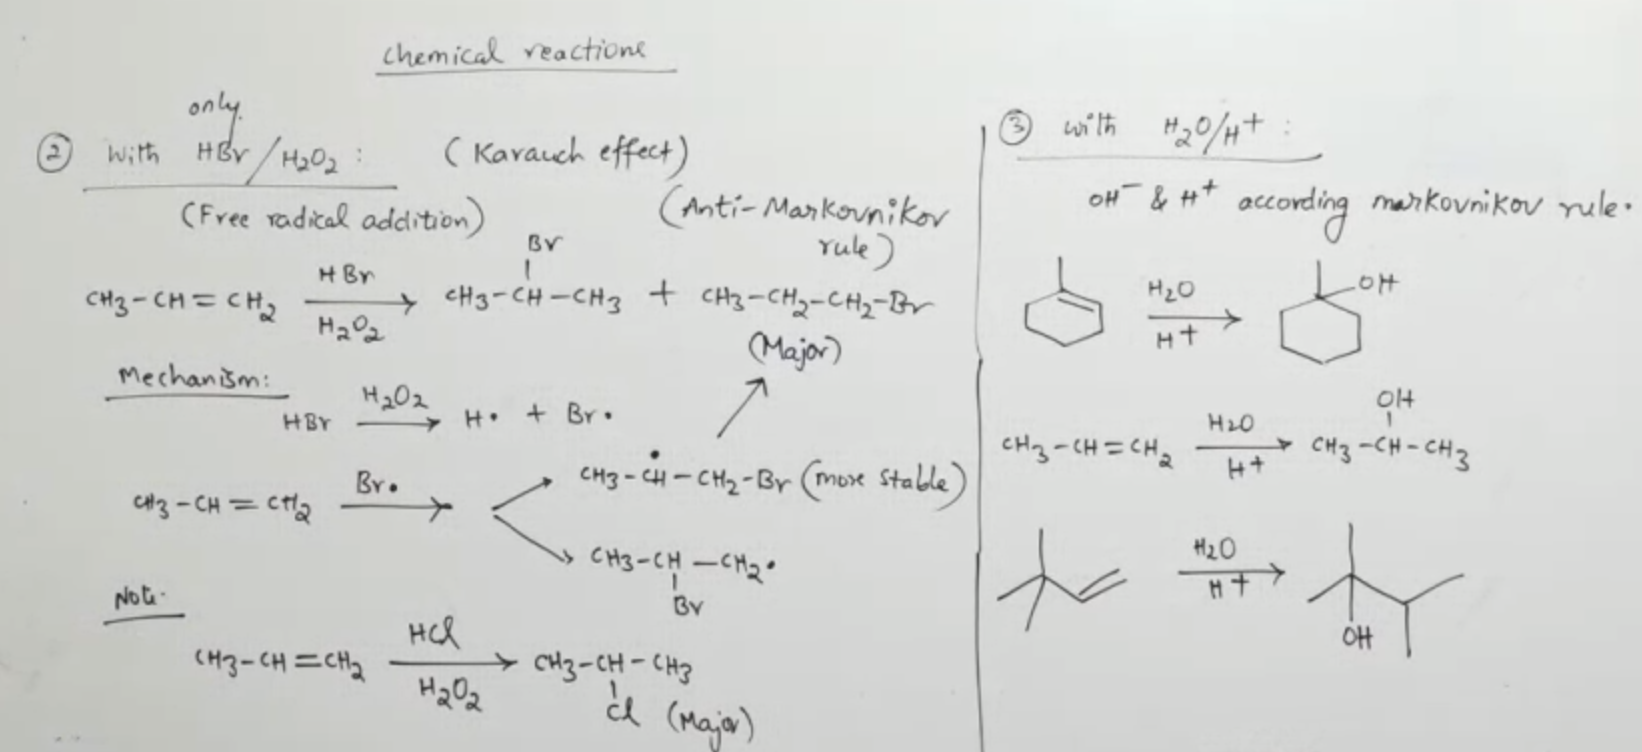 chemical reactions
only
② with HBr/H₂O₂ : (Karauch effect)
(Free radical addition) (Anti-Markovnikov
rule)
Br
CH₃-CH=CH₂ HBr H₂O₂ CH₃-CH-CH₃ + CH₃-CH₂-CH₂-Br
(Major)
Mechanism:
HBr H₂O₂ H• + Br•
CH₃-CH=CH₂ Br•
CH₃-ĊH-CH₂-Br (more stable)
CH₃-CH-CH₂•
Br
Note:
CH₃-CH=CH₂ HCl H₂O₂ CH₃-CH-CH₃
Cl (Major)
③ with H₂O/H⁺ :
OH⁻ & H⁺ according markovnikov rule.
H₂O
H⁺
OH
OH
CH₃-CH=CH₂ H₂O H⁺ CH₃-CH-CH₃
H₂O
H⁺
OH